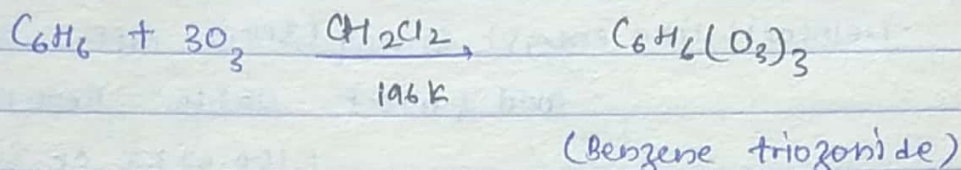 C₆H₆ + 3O₃ CH₂Cl₂ → C₆H₆(O₃)₃
196 K
(Benzene triozonide)